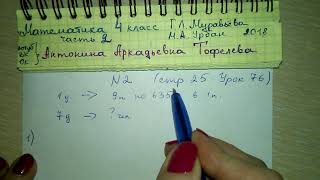 Математика 4 класс Г.Л. Муравьёва
часть 2 М.А. Урбан 2018
Антонина Аркадьевна Тофелева
N2 (стр 25 Урок 76)
1д → 9п по 635 в 1п.
7д → ?
1)